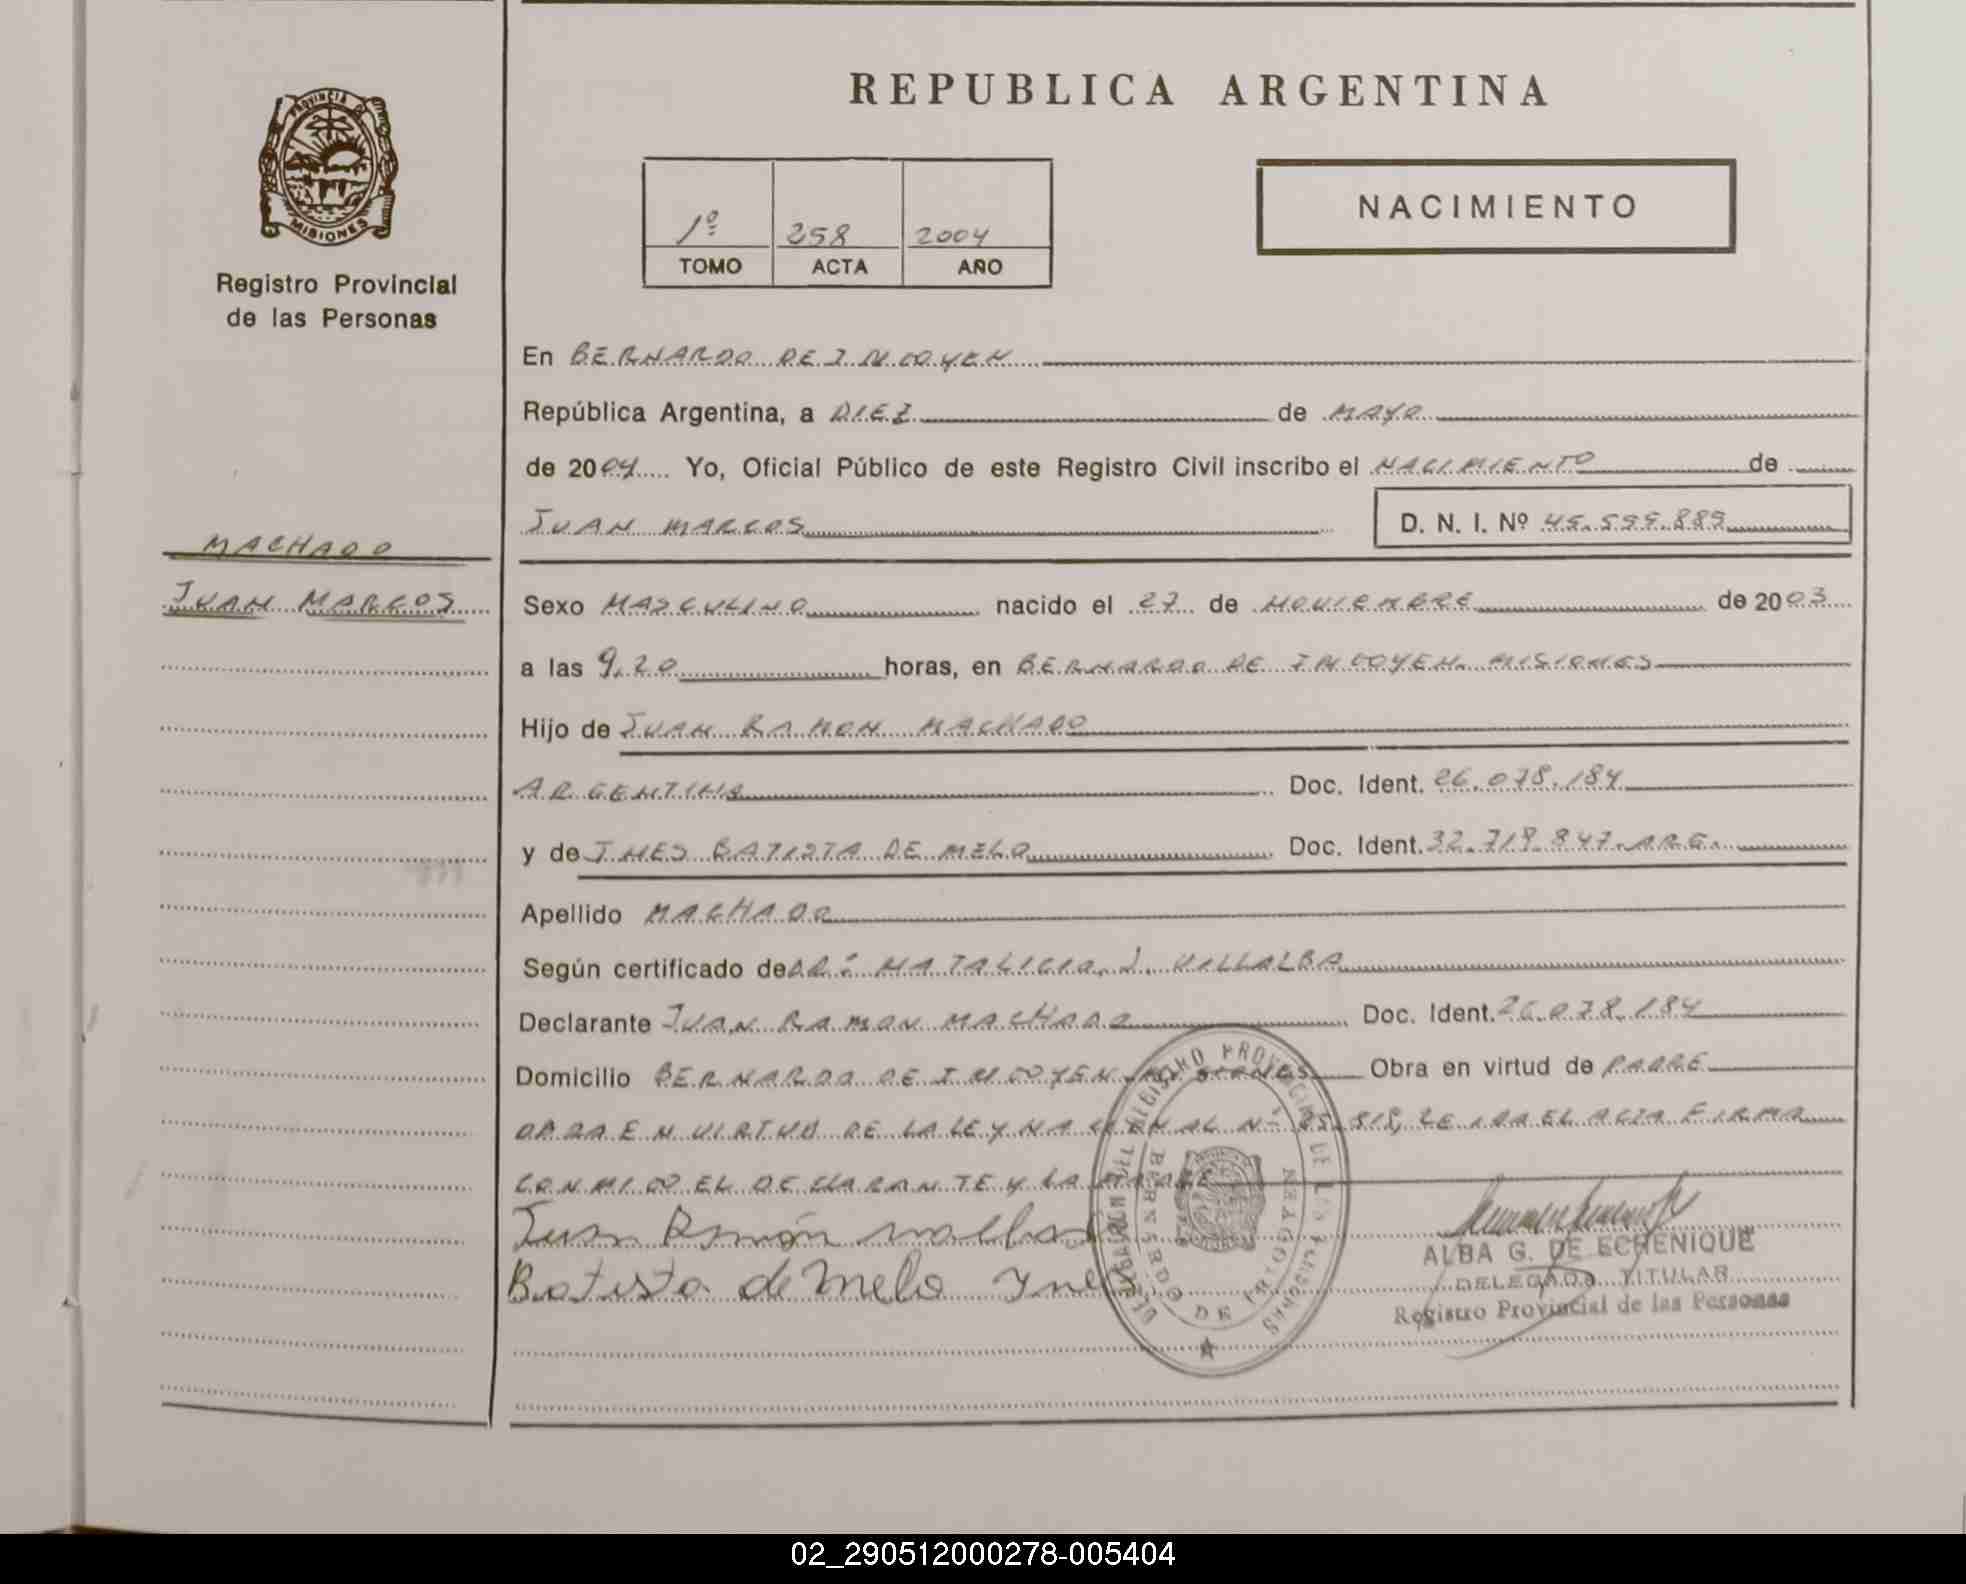 PROVINCIA DE
MISIONES
Registro Provincial
de las Personas
MACHADO
JUAN MARCOS
REPUBLICA ARGENTINA
1º 258 2004
TOMO ACTA AÑO
NACIMIENTO
En BERNARDO DE IRIGOYEN
República Argentina, a DIEZ de MAYO
de 2004 Yo, Oficial Público de este Registro Civil inscribo el NACIMIENTO de
JUAN MARCOS D. N. I. Nº 45.595.889
Sexo MASCULINO nacido el 27 de NOVIEMBRE de 2003
a las 9,20 horas, en BERNARDO DE IRIGOYEN. MISIONES
Hijo de JUAN RAMON MACHADO
ARGENTINA Doc. Ident. 26.078.184
y de INES BATISTA DE MELO Doc. Ident. 32.719.847. ARG.
Apellido MACHADO
Según certificado de DR: NATALICIO. J. VILLALBA
Declarante JUAN RAMON MACHADO Doc. Ident. 26.078.184
Domicilio BERNARDO DE IRIGOYEN MISIONES Obra en virtud de PADRE
OBRA EN VIRTUD DE LA LEY NACIONAL Nº 25.818, LEIDA EL ACTA FIRMA
CONMIGO EL DECLARANTE Y LA MADRE
Juan Ramón
Batista de Melo Ines
DELEGACION DEL REGISTRO PROVINCIAL DE LAS PERSONAS
BERNARDO DE IRIGOYEN
ALBA G. DE ECHENIQUE
DELEGADO TITULAR
Registro Provincial de las Personas
02_290512000278-005404